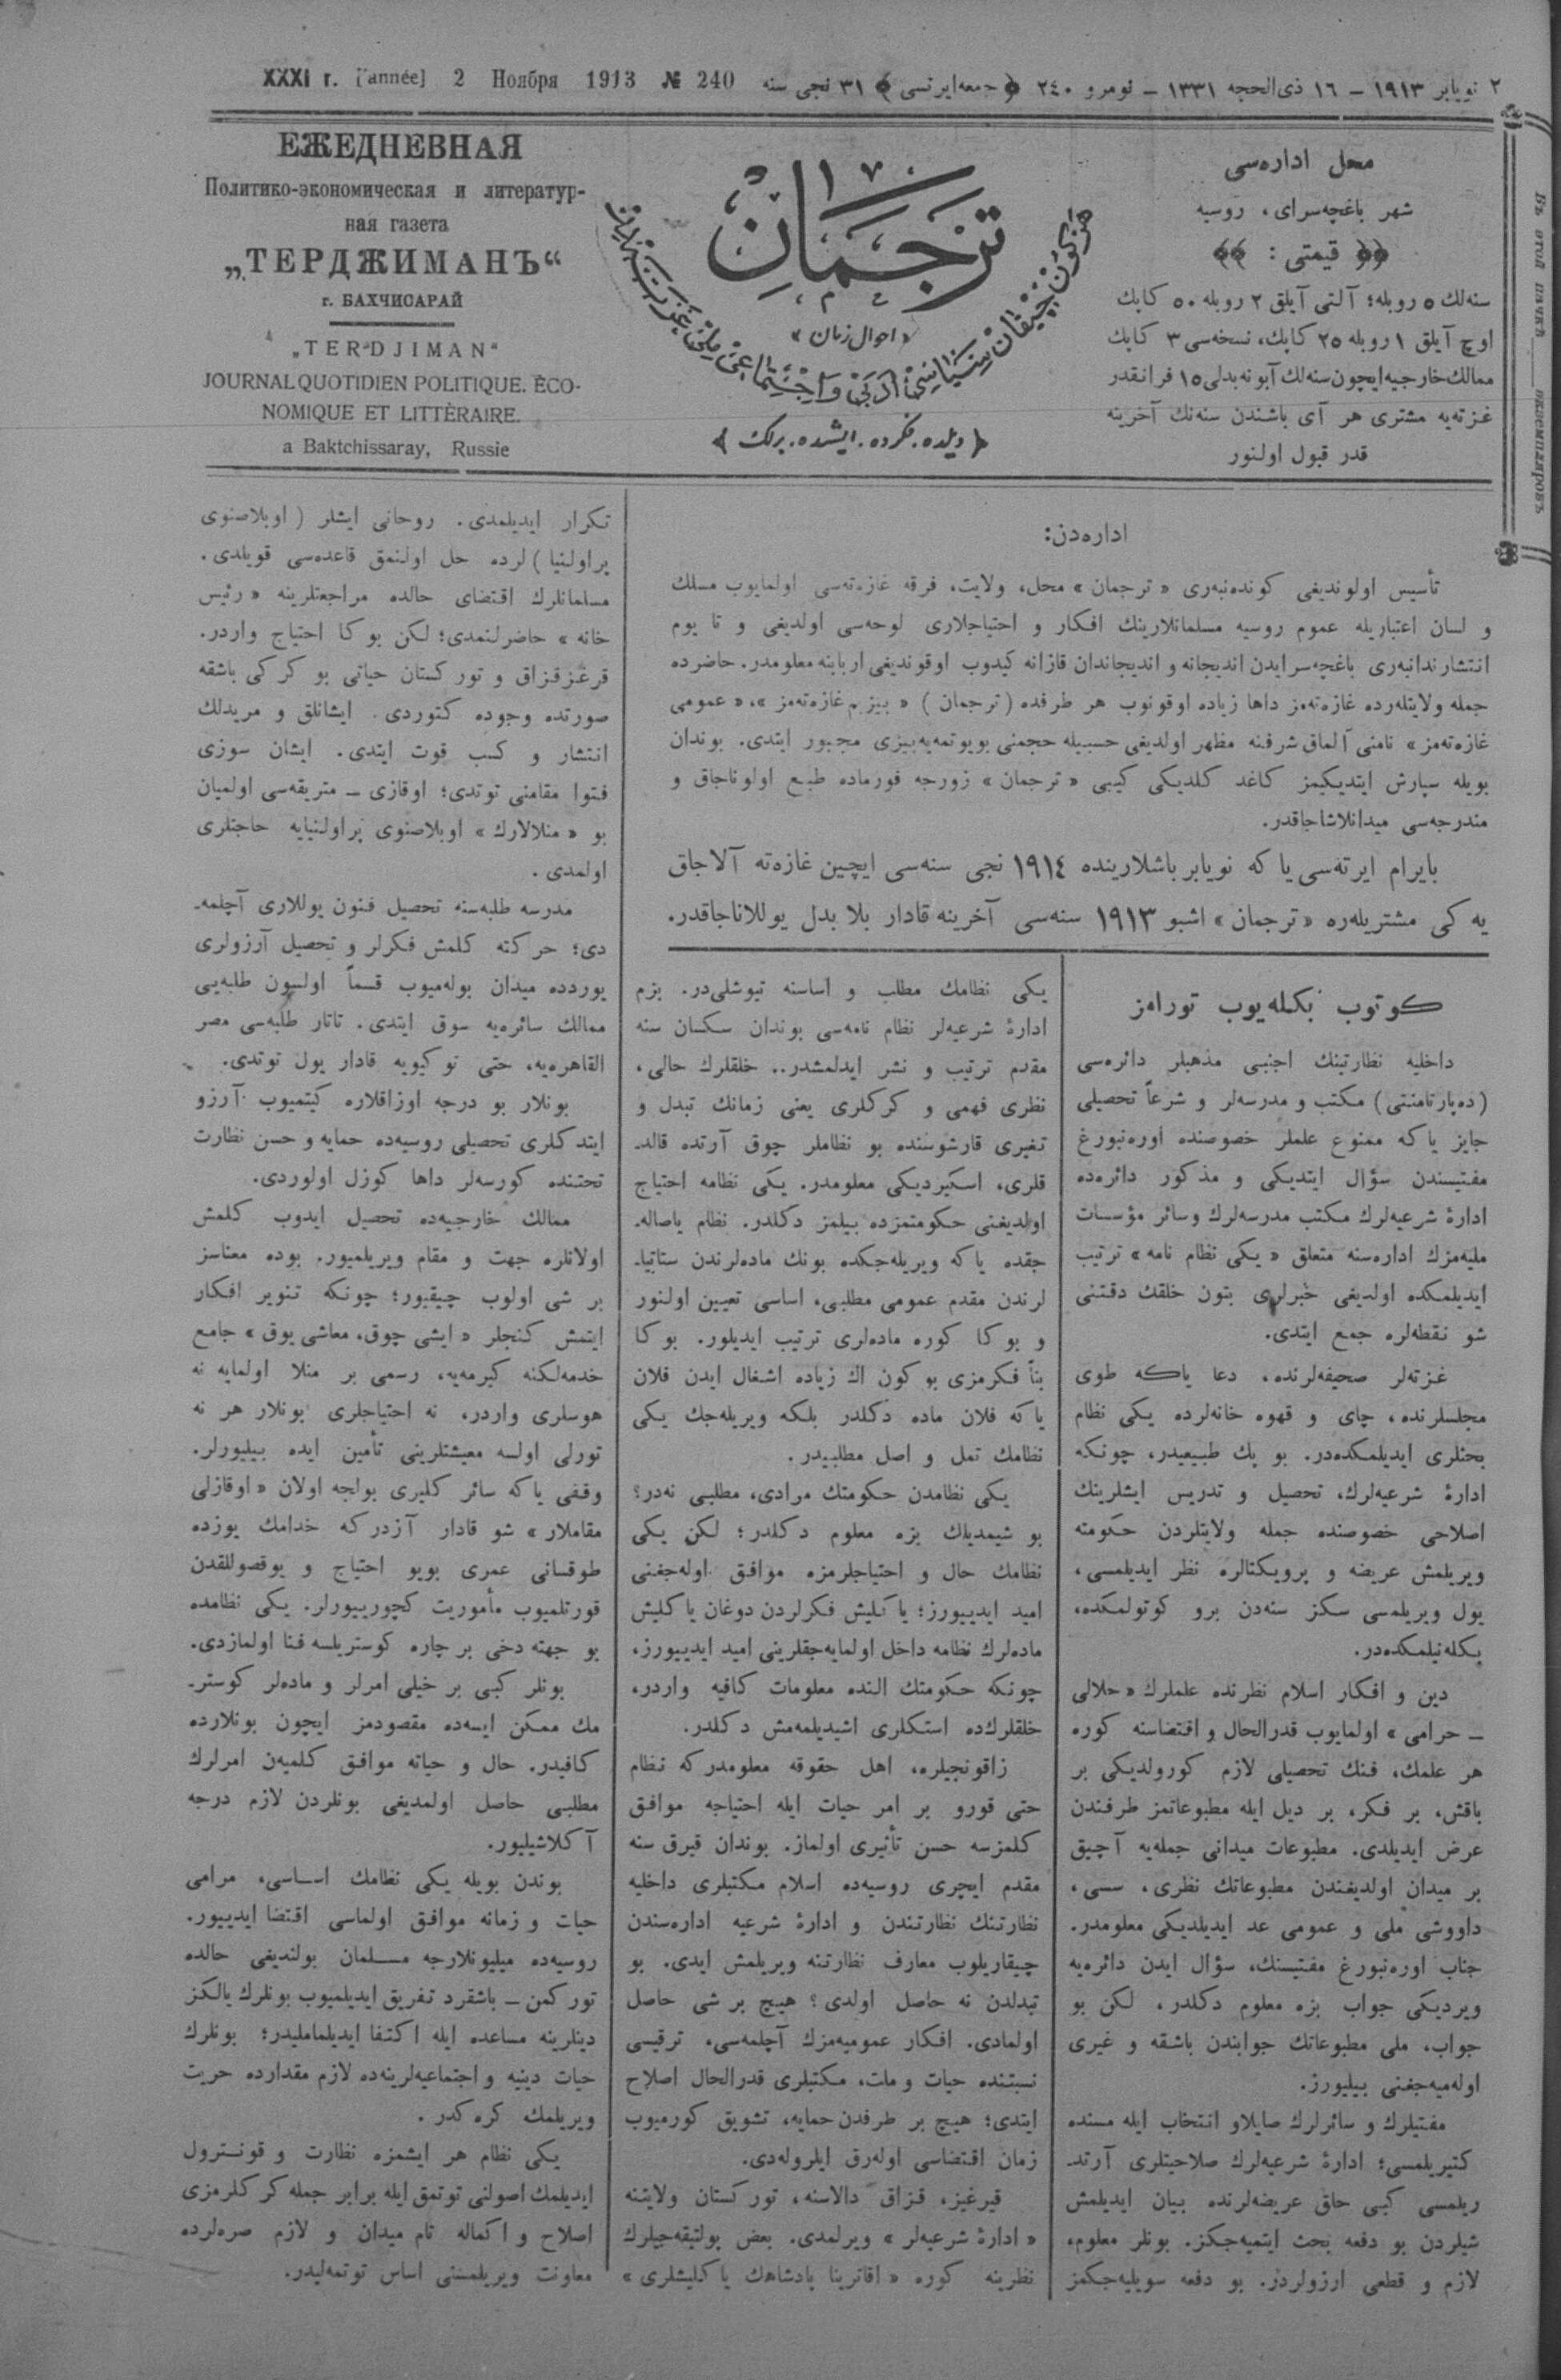 XXXI г. [année] 2 Ноября 1913 № 240
٢ نویابر ١٩١٣ – ١٦ ذی‌الحجه ١٣٣١ – نومرو ٢٤٠ ﴿جمعه‌ایرتسی﴾ ٣١ نجی سنه
ЕЖЕДНЕВНАЯ
Политико-экономическая и литератур-
ная газета
„ТЕРДЖИМАНЪ“
г. БАХЧИСАРАЙ
„TERDJIMAN“
JOURNAL QUOTIDIEN POLITIQUE. ÉCO-
NOMIQUE ET LITTÈRAIRE.
a Baktchissaray, Russie
ترجمان
«احوال زمان»
﴿ دیلده. فکرده. ایشده. برلك ﴾
محل اداره‌سی
شهر باغچه‌سرای، روسیه
﴿﴿ قیمتی: ﴾﴾
سنه‌لك ٥ روبله؛ آلتی آیلق ٢ روبله ٥٠ كاپك
اوچ آیلق ١ روبله ٢٥ كاپك، نسخه‌سی ٣ كاپك
ممالك خارجیه‌ایچون سنه‌لك آبونه‌بدلی ١٥ فرانقدر
غزته‌یه مشتری هر آی باشندن سنه‌نك آخرینه
قدر قبول اولنور
Въ этой пачкѣ экземпляровъ
اداره‌دن:
تأسیس اولوندیغی كونده‌نبه‌ری «ترجمان» محل، ولایت، فرقه غازه‌ته‌سی اولمایوب مسلك
و لسان اعتباریله عموم روسیه مسلمانلارینك افكار و احتیاجلاری لوحه‌سی اولدیغی و تا یوم
انتشارندانبه‌ری باغچه‌سرایدن اندیجانه و اندیجاندان قازانه كیدوب اوقوندیغی اربابنه معلومدر. حاضرده
جمله ولایتله‌رده غازه‌ته‌مز داها زیاده اوقونوب هر طرفده (ترجمان) «بیزیم غازه‌ته‌مز»، «عمومی
غازه‌ته‌مز» نامنی آلماق شرفنه مظهر اولدیغی حسبیله حجمنی بویوتمه‌یه‌بیزی مجبور ایتدی. بوندان
بویله سپارش ایتدیكیمز كاغد كلدیكی كیبی «ترجمان» زورجه فورماده طبع اولوناجاق و
مندرجه‌سی میدانلاشاجاقدر.
بایرام ایرته‌سی یا كه نویابر باشلارینده ١٩١٤ نجی سنه‌سی ایچین غازه‌ته آلاجاق
یه كی مشتریله‌ره «ترجمان» اشبو ١٩١٣ سنه‌سی آخرینه قادار بلا بدل یوللاناجاقدر.
كوتوب بكله‌یوب تورامز
داخلیه نظارتینك اجنبی مذهبلر دائره‌سی
(ده‌پارتامنتی) مكتب و مدرسه‌لر و شرعاً تحصیلی
جایز یا كه ممنوع علملر خصوصنده اوره‌نبورغ
مفتیسندن سؤال ایتدیكی و مذكور دائره‌ده
ادارهٔ شرعیه‌لرك مكتب مدرسه‌لرك وسائر مؤسسات
ملیه‌مزك اداره‌سنه متعلق «یكی نظام نامه» ترتیب
ایدیلمكده اولدیغی خبرلری بتون خلقك دقتنی
شو نقطه‌لره جمع ایتدی.
غزته‌لر صحیفه‌لرنده، دعا یاكه طوی
مجلسلرنده، چای و قهوه خانه‌لرده یكی نظام
بحثلری ایدیلمكده‌در. بو پك طبیعیدر، چونكه
ادارهٔ شرعیه‌لرك، تحصیل و تدریس ایشلرینك
اصلاحی خصوصنده جمله ولایتلردن حكومته
ویریلمش عریضه و پرویكتالره نظر ایدیلمسی،
یول ویریلمسی سكز سنه‌دن برو كوتولمكده،
بكله‌نیلمكده‌در.
دین و افكار اسلام نظرنده علملرك «حلالی
– حرامی» اولمایوب قدرالحال و اقتضاسنه كوره
هر علمك، فنك تحصیلی لازم كورولدیكی بر
باقش، بر فكر، بر دیل ایله مطبوعاتمز طرفندن
عرض ایدیلدی. مطبوعات میدانی جمله‌یه آچیق
بر میدان اولدیغندن مطبوعاتك نظری، سسی،
داووشی ملی و عمومی عد ایدیلدیكی معلومدر.
جناب اوره‌نبورغ مفتیسنك، سؤال ایدن دائره‌یه
ویردیكی جواب بزه معلوم دكلدر، لكن بو
جواب، ملی مطبوعاتك جوابندن باشقه و غیری
اوله‌میه‌جغنی بیلیورز.
مفتیلرك و سائرلرك صایلاو انتخاب ایله مسنده
كتیریلمسی؛ ادارهٔ شرعیه‌لرك صلاحیتلری آرتد‍ـ
ریلمسی كبی حاق عریضه‌لرنده بیان ایدیلمش
شیلردن بو دفعه بحث ایتمیه‌جكز. بونلر معلوم،
لازم و قطعی ارزولردر. بو دفعه سویلیه‌جكمز
یكی نظامك مطلب و اساسنه تیوشلی‌در. بزم
ادارهٔ شرعیه‌لر نظام نامه‌سی بوندان سكسان سنه
مقدم ترتیب و نشر ایدلمشدر.. خلقلرك حالی،
نظری فهمی و كركلری یعنی زمانك تبدل و
تغیری قارشوسنده بو نظاملر چوق آرتده قالد‍ـ
قلری، اسكیردیكی معلومدر. یكی نظامه احتیاج
اولدیغنی حكومتمزده بیلمز دكلدر. نظام یاصاله‍ـ
جقده یا كه ویریله‌جكده بونك ماده‌لرندن ستاتیا‍ـ
لرندن مقدم عمومی مطلبی، اساسی تعیین اولنور
و بو كا كوره ماده‌لری ترتیب ایدیلور. بو كا
بنأً فكرمزی بو كون اك زیاده اشغال ایدن فلان
یا كه فلان ماده دكلدر بلكه ویریله‌جك یكی
نظامك تمل و اصل مطلبیدر.
یكی نظامدن حكومتك مرادی، مطلبی نه‌در؟
بو شیمدیلك بزه معلوم دكلدر؛ لكن یكی
نظامك حال و احتیاجلرمزه موافق اوله‌جغنی
امید ایدییورز؛ یا كلیش فكرلردن دوغان یا كلیش
ماده‌لرك نظامه داخل اولمایه‌جقلرینی امید ایدییورز،
چونكه حكومتك النده معلومات كافیه واردر،
خلقلرك‌ده استكلری اشیدیلمه‌مش دكلدر.
زاقونجیلره، اهل حقوقه معلومدر كه نظام
حتی قورو بر امر حیات ایله احتیاجه موافق
كلمزسه حسن تأثیری اولماز. بوندان قیرق سنه
مقدم ایچری روسیه‌ده اسلام مكتبلری داخلیه
نظارتنك نظارتندن و ادارهٔ شرعیه اداره‌سندن
چیقاریلوب معارف نظارتنه ویریلمش ایدی. بو
تبدلدن نه حاصل اولدی؟ هیچ بر شی حاصل
اولمادی. افكار عمومیه‌مزك آچلمه‌سی، ترقیسی
نسبتنده حیات و ملت، مكتبلری قدرالحال اصلاح
ایتدی؛ هیچ بر طرفدن حمایه، تشویق كورمیوب
زمان اقتضاسی اوله‌رق ایلروله‌دی.
قیرغیز، قزاق دالاسنه، توركستان ولایتنه
«ادارهٔ شرعیه‌لر» ویرلمدی. بعض پولتیقه‌جیلرك
نظرینه كوره «اقاترینا پادشاهك یا كلیشلری»
تكرار ایدیلمدی. روحانی ایشلر (اوبلاصنوی
پراولنیا) لرده حل اولنمق قاعده‌سی قویلدی.
مسلمانلرك اقتضای حالده مراجعتلرینه «رئیس
خانه» حاضرلنمدی؛ لكن بو كا احتیاج واردر.
قرغزقزاق و توركستان حیاتی بو كركی باشقه
صورتده وجوده كتوردی. ایشانلق و مریدلك
انتشار و كسب قوت ایتدی. ایشان سوزی
فتوا مقامنی توتدی؛ اوقازی – متریقه‌سی اولمیان
بو «منلالارك» اوبلاصنوی پراولنیایه حاجتلری
اولمدی.
مدرسه طلبه‌سنه تحصیل فنون یوللاری آچلمه‍ـ
دی؛ حركته كلمش فكرلر و تحصیل آرزولری
یوردده میدان بوله‌میوب قسماً اولسون طلبه‌یی
ممالك سائره‌یه سوق ایتدی. تاتار طلبه‌سی مصر
القاهره‌یه، حتی توكیویه قادار یول توتدی.
بونلار بو درجه اوزاقلاره كیتمیوب آرزو
ایتدكلری تحصیلی روسیه‌ده حمایه و حسن نظارت
تحتنده كورسه‌لر داها كوزل اولوردی.
ممالك خارجیه‌ده تحصیل ایدوب كلمش
اولانلره جهت و مقام ویریلمیور. بوده معناسز
بر شی اولوب چیقیور؛ چونكه تنویر افكار
ایتمش كنجلر «ایشی چوق، معاشی یوق» جامع
خدمه‌لكنه كیرمه‌یه، رسمی بر منلا اولمایه نه
هوسلری واردر، نه احتیاجلری بونلار هر نه
تورلی اولسه معیشتلرینی تأمین ایده بیلیورلر.
وقفی یا كه سائر كلیری بولجه اولان «اوقازلی
مقاملار» شو قادار آزدر كه خدامك یوزده
طوقسانی عمری بویو احتیاج و یوقصوللقدن
قورتلمیوب مأموریت كچورییورلر. یكی نظامده
بو جهته دخی بر چاره كوستریلسه فنا اولمازدی.
بونلر كبی بر خیلی امرلر و ماده‌لر كوستر‍ـ
مك ممكن ایسه‌ده مقصودمز ایچون بونلارده
كافیدر. حال و حیاته موافق كلمیه‌ن امرلرك
مطلبی حاصل اولمدیغی بونلردن لازم درجه
آكلاشیلیور.
بوندن بویله یكی نظامك اساسی، مرامی
حیات و زمانه موافق اولماسی اقتضا ایدییور.
روسیه‌ده میلیونلارجه مسلمان بولندیغی حالده
توركمن – باشقرد تفریق ایدیلمیوب بونلرك یالكز
دینلرینه مساعده ایله اكتفا ایدیلماملیدر؛ بونلرك
حیات دینیه و اجتماعیه‌لرینه‌ده لازم مقدارده حریت
ویریلمك كره‌كدر.
یكی نظام هر ایشمزه نظارت و قونترول
ایدیلمك اصولنی توتمق ایله برابر جمله كركلرمزی
اصلاح و اكماله تام میدان و لازم صره‌لرده
معاونت ویریلمسنی اساس توتمه‌لیدر.